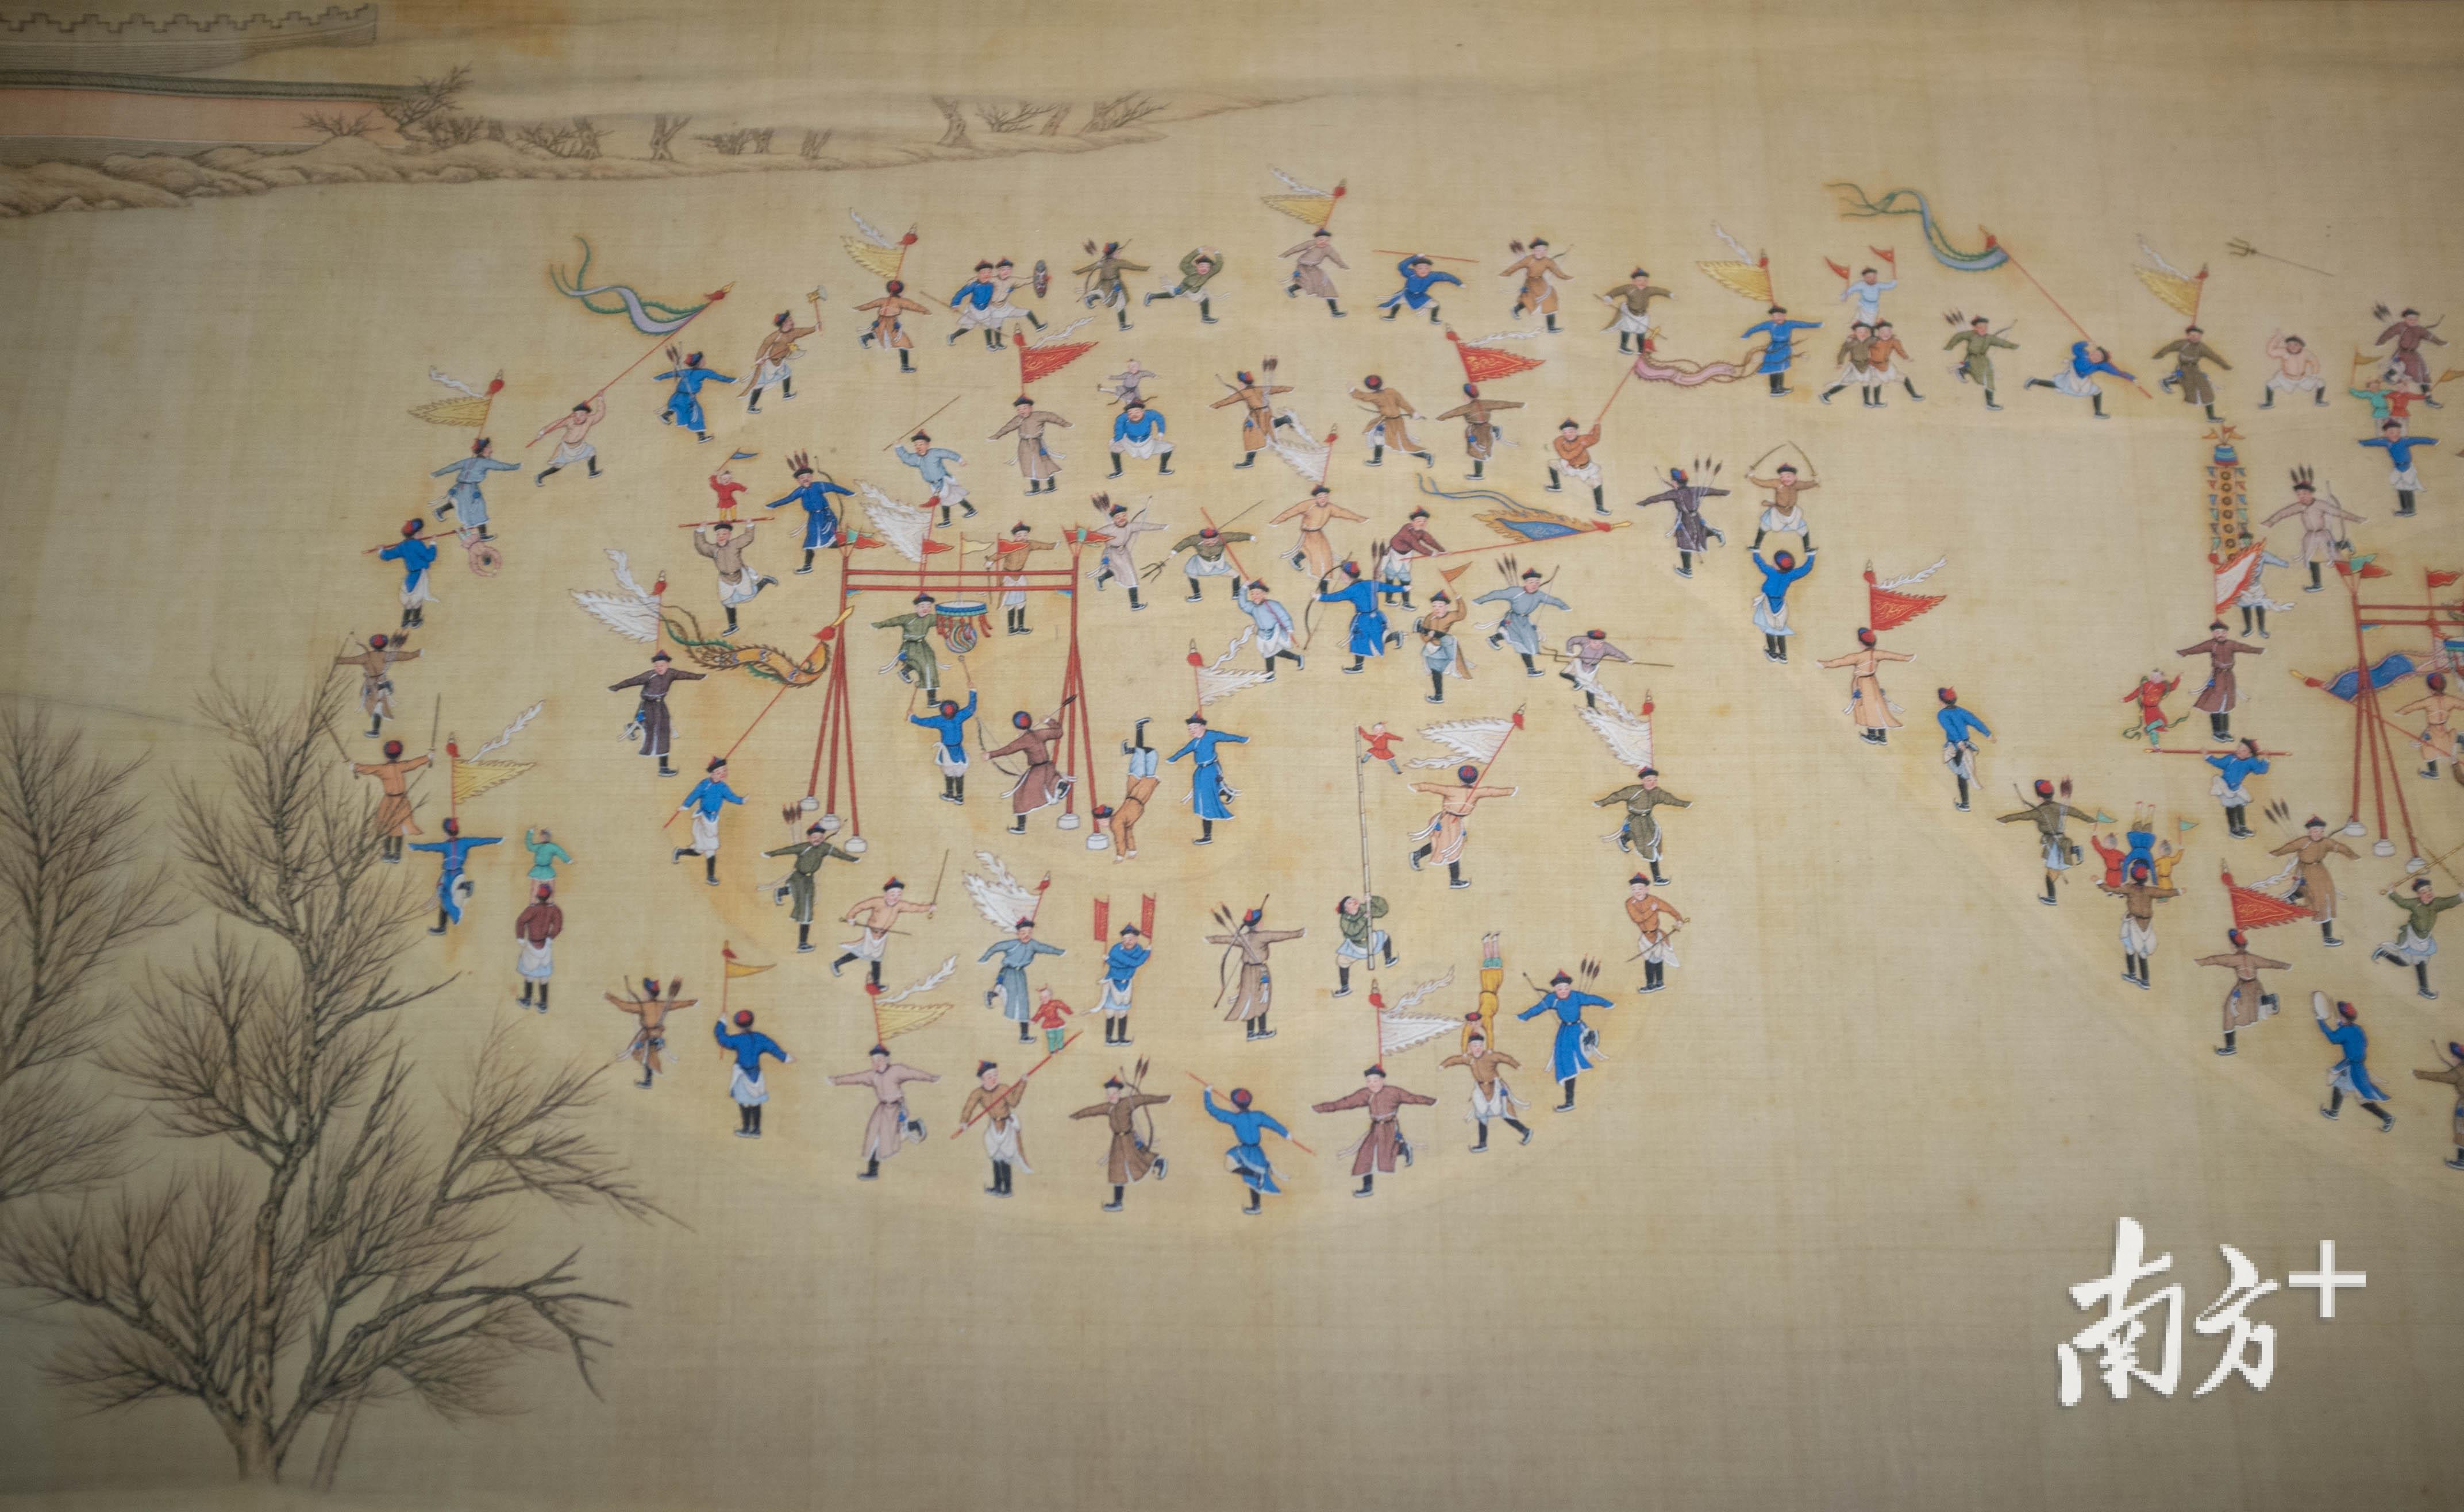 南方+